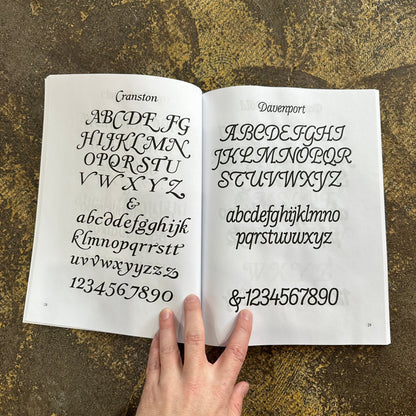 Cranston
ABCDE FG
HIJKLMN
OPQRSTU
VWXYZ
&
abcddefgghijk
klmnopqrrstt
uvvwxyyzzz
1234567890
Davenport
ABCDEFGHI
JKLMNOPQR
STUVWXYZ
abcdefghijklmno
pqrstuvwxyz
&1234567890